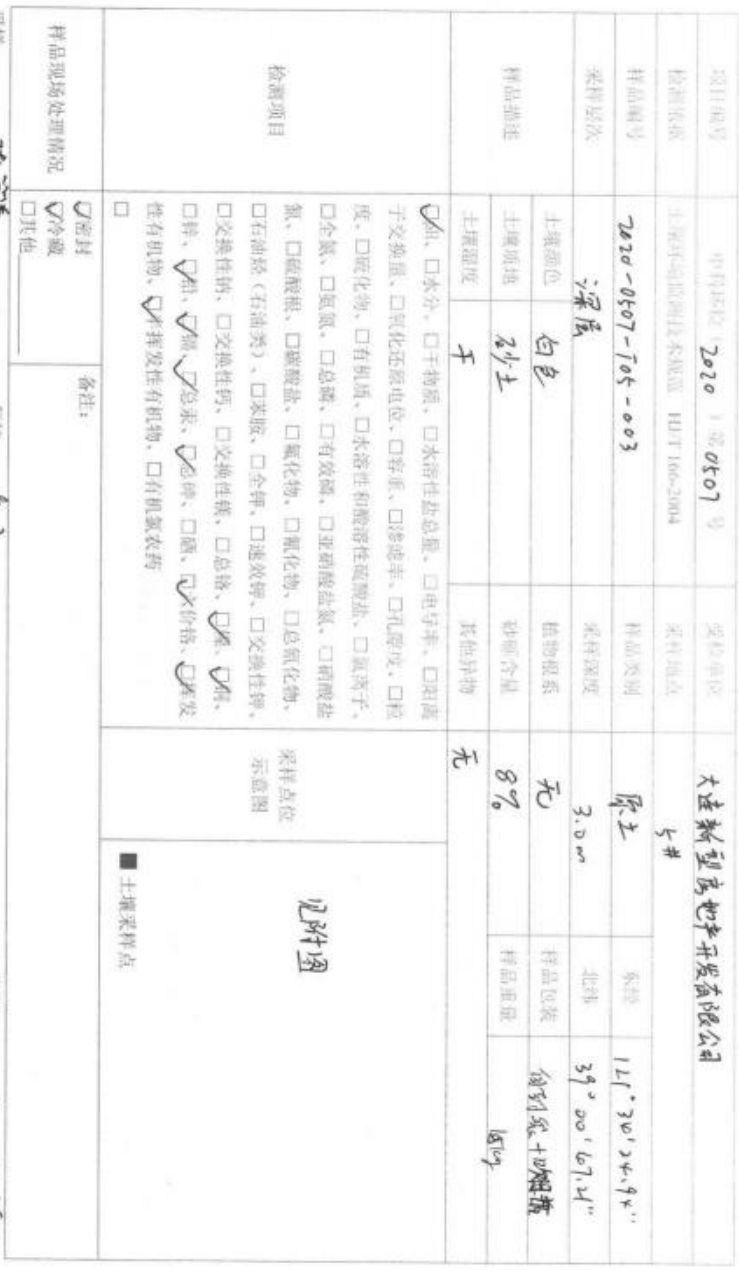 项目编号 中持检仪（2020）第0507号 受检单位 大连新型房地产开发有限公司
检测依据 土壤环境监测技术规范 HJ/T 166-2004 采样地点 5#
样品编号 2020-0507-T05-003 样品类别 原土 东经
采样层次 深层 采样深度 3.0m 北纬 39°00'67.21"
样品描述 土壤颜色 白色 植物根系 无 样品包装
土壤质地 砂土 砂砾含量 8% 样品重量
土壤湿度 干 其他异物 无
检测项目
☑pH、□水分、□干物质、□水溶性盐总量、□电导率、□阳离
子交换量、□氧化还原电位、□容重、□渗滤率、□孔隙度、□粒
度、□硫化物、□有机质、□水溶性和酸溶性硫酸盐、□氯离子、
□全氮、□氨氮、□总磷、□有效磷、□亚硝酸盐氮、□硝酸盐
氮、□硫酸根、□碳酸盐、□氟化物、□氰化物、□总氰化物、
□石油烃（石油类）、□苯胺、□全钾、□速效钾、□交换性钾、
□交换性钠、□交换性钙、□交换性镁、□总铬、☑镍、☑铜、
□锌、☑铅、☑镉、☑总汞、☑总砷、□硒、☑六价铬、☑挥发
性有机物、☑半挥发性有机物、□有机氯农药
□
采样点位
示意图
见附图
■ 土壤采样点
样品现场处理情况
☑密封
☑冷藏
□其他
备注：